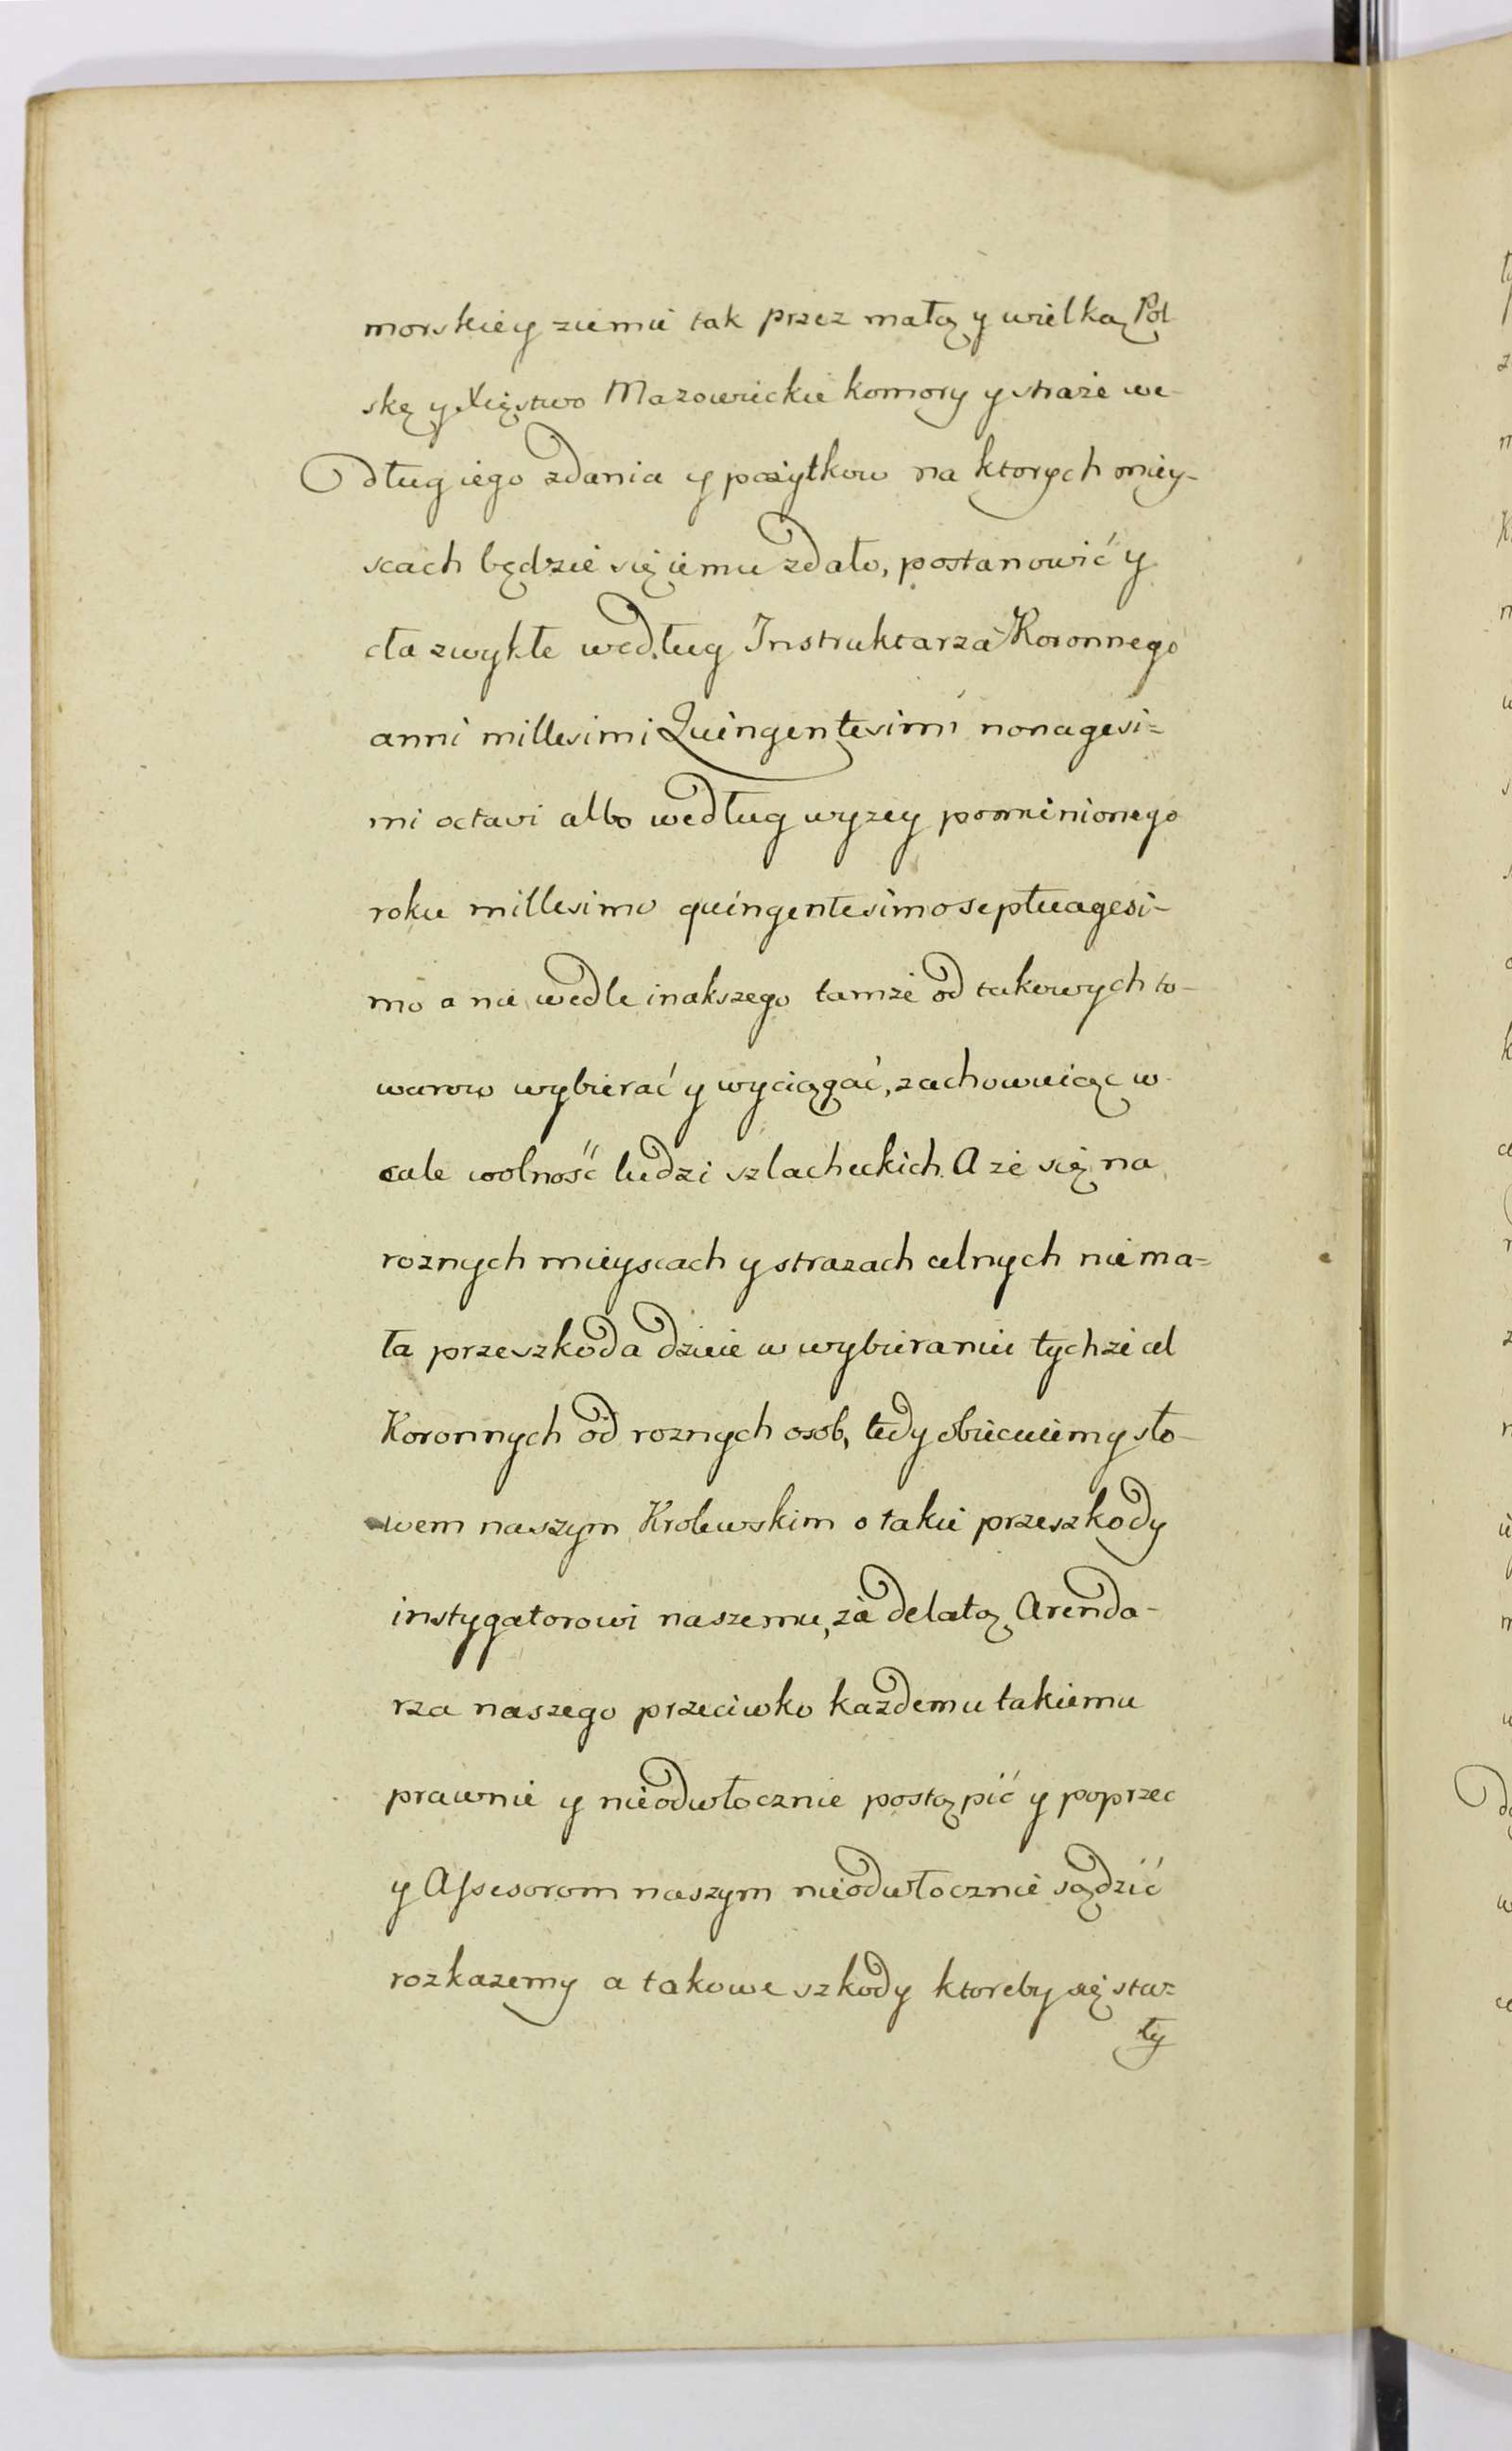 morskiey ziemie tak przez małą y wielką Pol
skę y Xięstwo Mazowieckie komory y straże we-
dług iego zdania y pożytkow na ktorych miey-
scach będzie się iemu zdało, postanowić y
cła zwykłe według Instruktarza Koronnego
anni millesimi Quingentesimi nonagesi=
mi octavi albo według wyzey pomienionego
roku millesimo quingentesimo septuagesi-
mo a nie wedle inakszego tamże od takowych to-
warow wybierać y wyciągać, zachowuiąc w
cale wolność ludzi szlacheckich. A że się na
roznych mieyscach y strazach celnych niema=
ła przeszkoda dzieie w wybieraniu tychże cel
Koronnych od roznych osob, tedy obiecuiemy sło-
wem naszym Krolewskim o takie przeszkody
instygatorowi naszemu, za delatą Arenda-
rza naszego przeciwko każdemu takiemu
prawnie y nieodwłocznie postąpić y poprzec
y Assesorom naszym nieodwłocznie sądzić
rozkazemy a takowe szkody ktoreby się sta=
ły